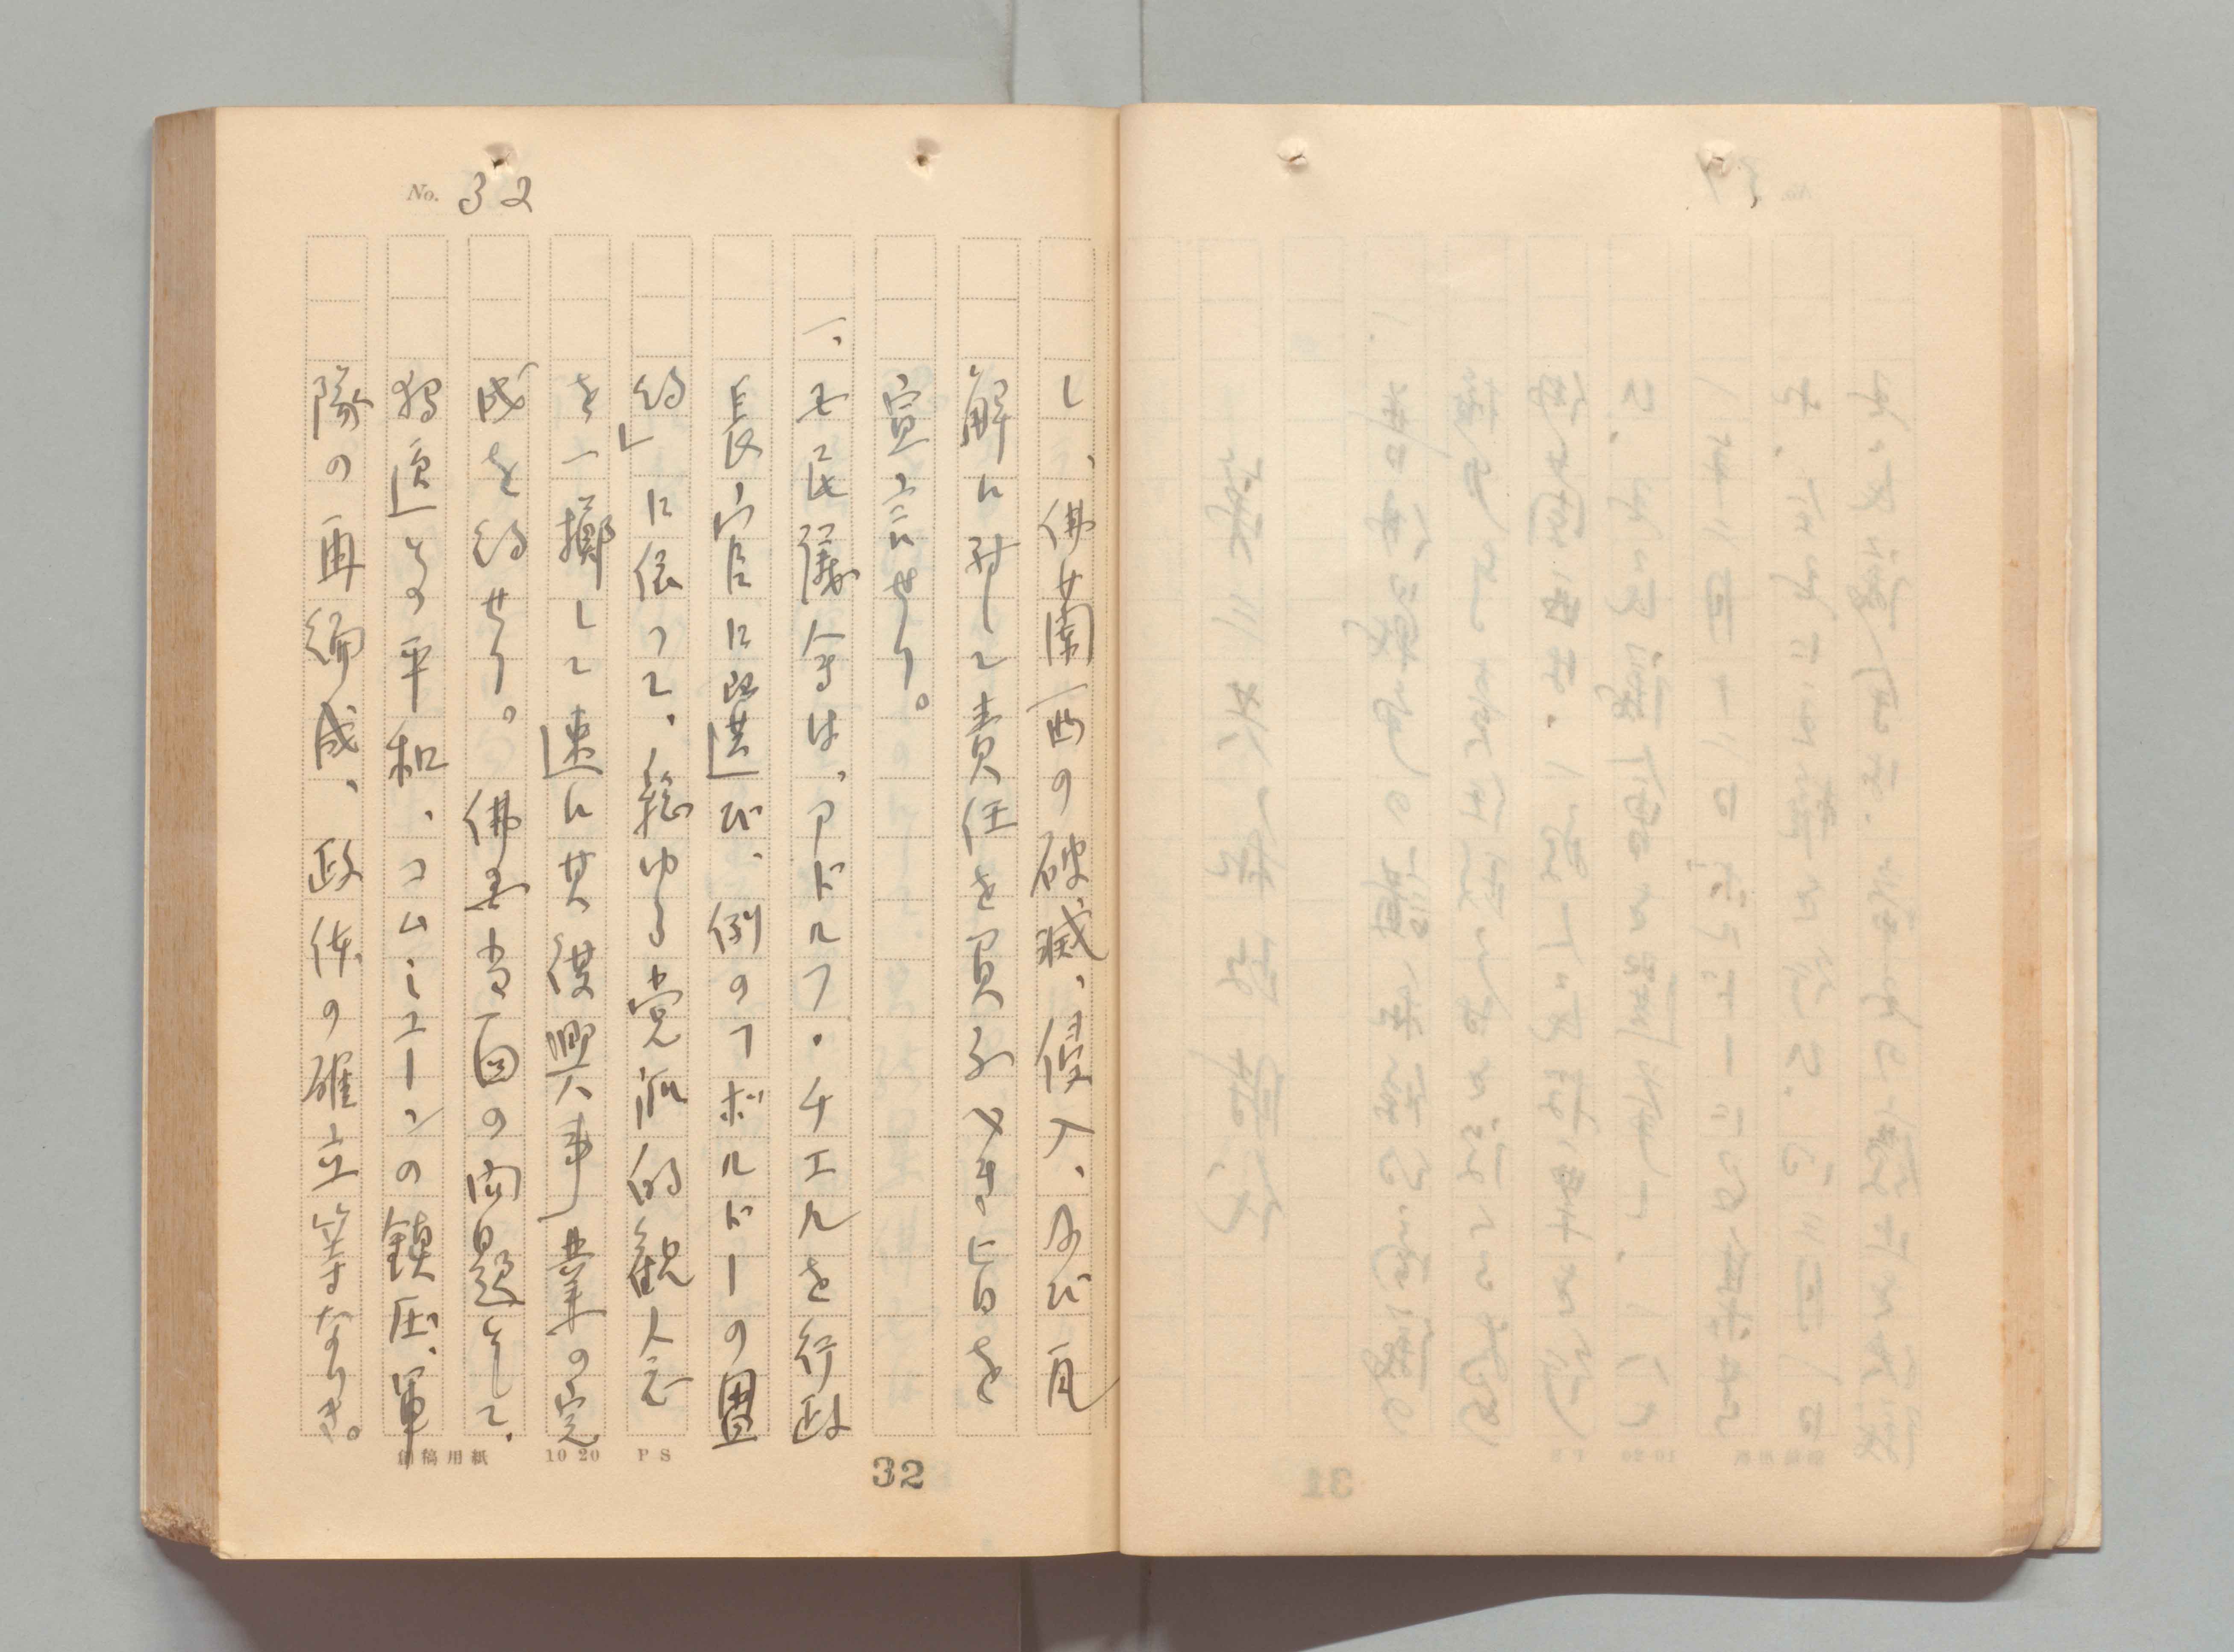 No. 32
し、佛蘭西の破滅、侵入、及び瓦
解に対して責任を負ふべき旨を
宣言せり。
一、モ民儀会は、アドルフ・チエルを行政
長官に選び、例のフボルドーの盟
約」に依つて、総ゆる党派的観念
を一擲して速に其復興事業の完
成を約せり。佛国当面の問題として、
独逸との平和、コムミユーンの鎮圧、軍
隊の再編成、政体の確立等なりき。
原稿用紙 10 20 PS
32